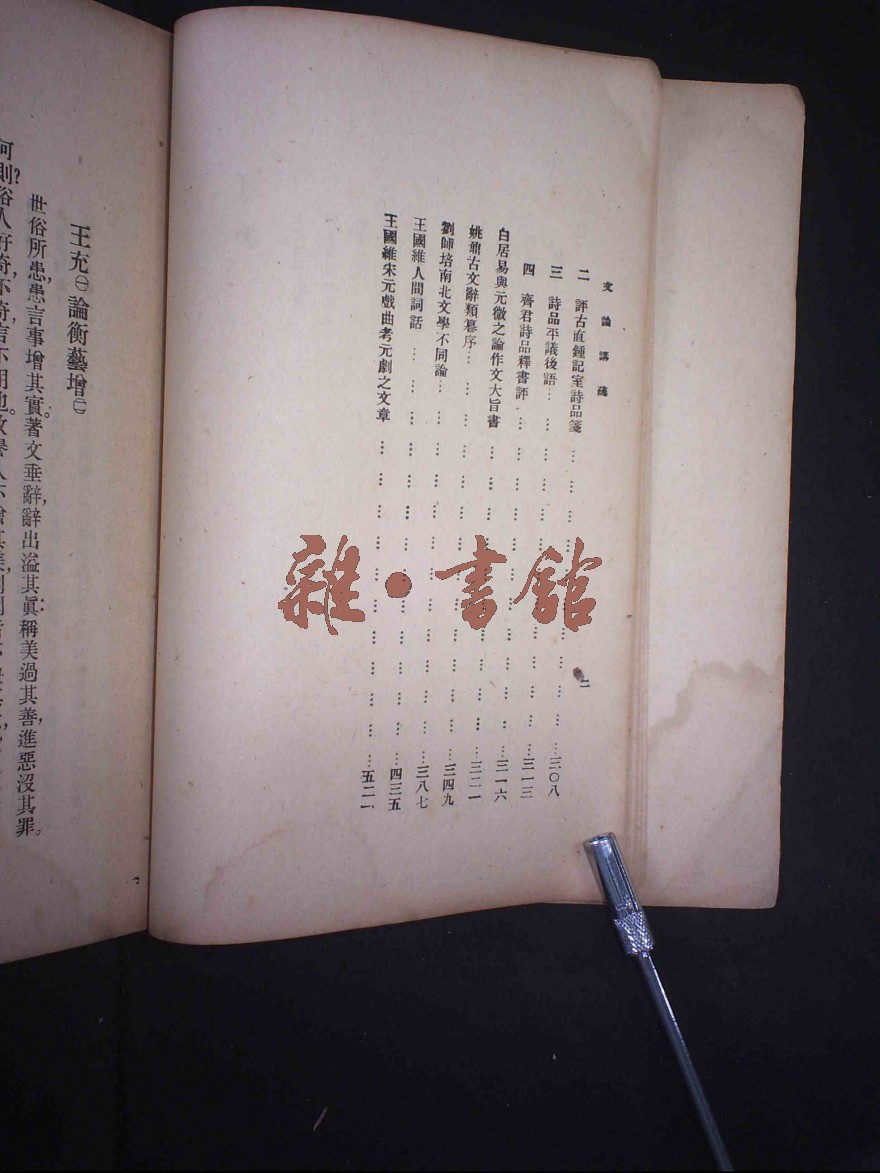 文論講疏
二 評古直鍾記室詩品箋………………三〇八
三 詩品平議後語………………三一三
四 齊君詩品釋書評………………三一六
白居易與元微之論作文大旨書………………三二一
姚鼐古文辭類纂序………………三四九
劉師培南北文學不同論………………三八七
王國維人間詞話………………四三五
王國維宋元戲曲考元劇之文章………………五二一
二
雜·書館
王充㊀論衡藝增㊁
世俗所患,患言事增其實。著文垂辭,辭出溢其眞,稱美過其善,進惡沒其罪。
何則?俗人好奇,不奇言不用也。故譽人不增其美,則聞者